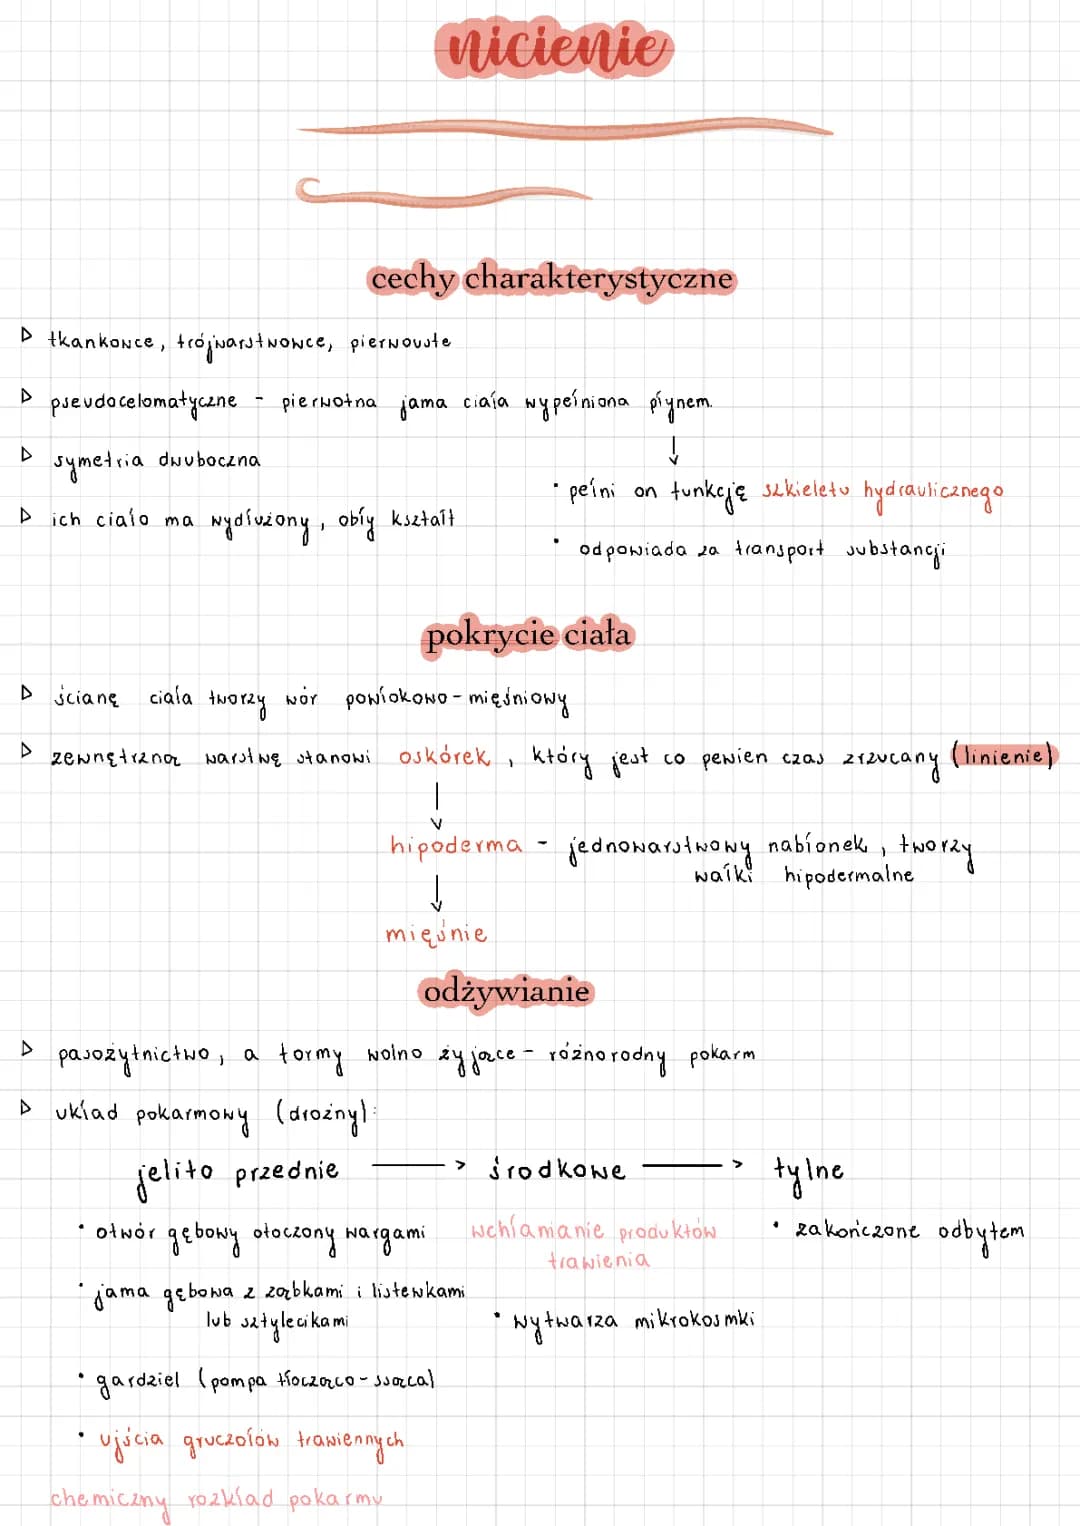 nicienie
cechy charakterystyczne
▷ tkankowce, trójwarstwowce, pierwouste
▷ pseudocelomatyczne - pierwotna jama ciała wypełniona płynem.
↓
▷ symetria dwuboczna
• pełni on funkcję szkieletu hydraulicznego
▷ ich ciało ma wydłużony, obły kształt
• odpowiada za transport substancji
pokrycie ciała
▷ ścianę ciała tworzy wór powłokowo-mięśniowy
▷ zewnętrzną warstwę stanowi oskórek, który jest co pewien czas zrzucany (linienie)
↓
hipoderma - jednowarstwowy nabłonek, tworzy
wałki hipodermalne
↓
mięśnie
odżywianie
▷ pasożytnictwo, a formy wolno żyjące - różnorodny pokarm
▷ układ pokarmowy (drożny):
jelito przednie → środkowe → tylne
• otwór gębowy otoczony wargami wchłanianie produktów • zakończone odbytem
trawienia
• jama gębowa z ząbkami i listewkami
lub sztylecikami • wytwarza mikrokosmki
• gardziel (pompa tłocząco-ssąca)
• ujścia gruczołów trawiennych
chemiczny rozkład pokarmu